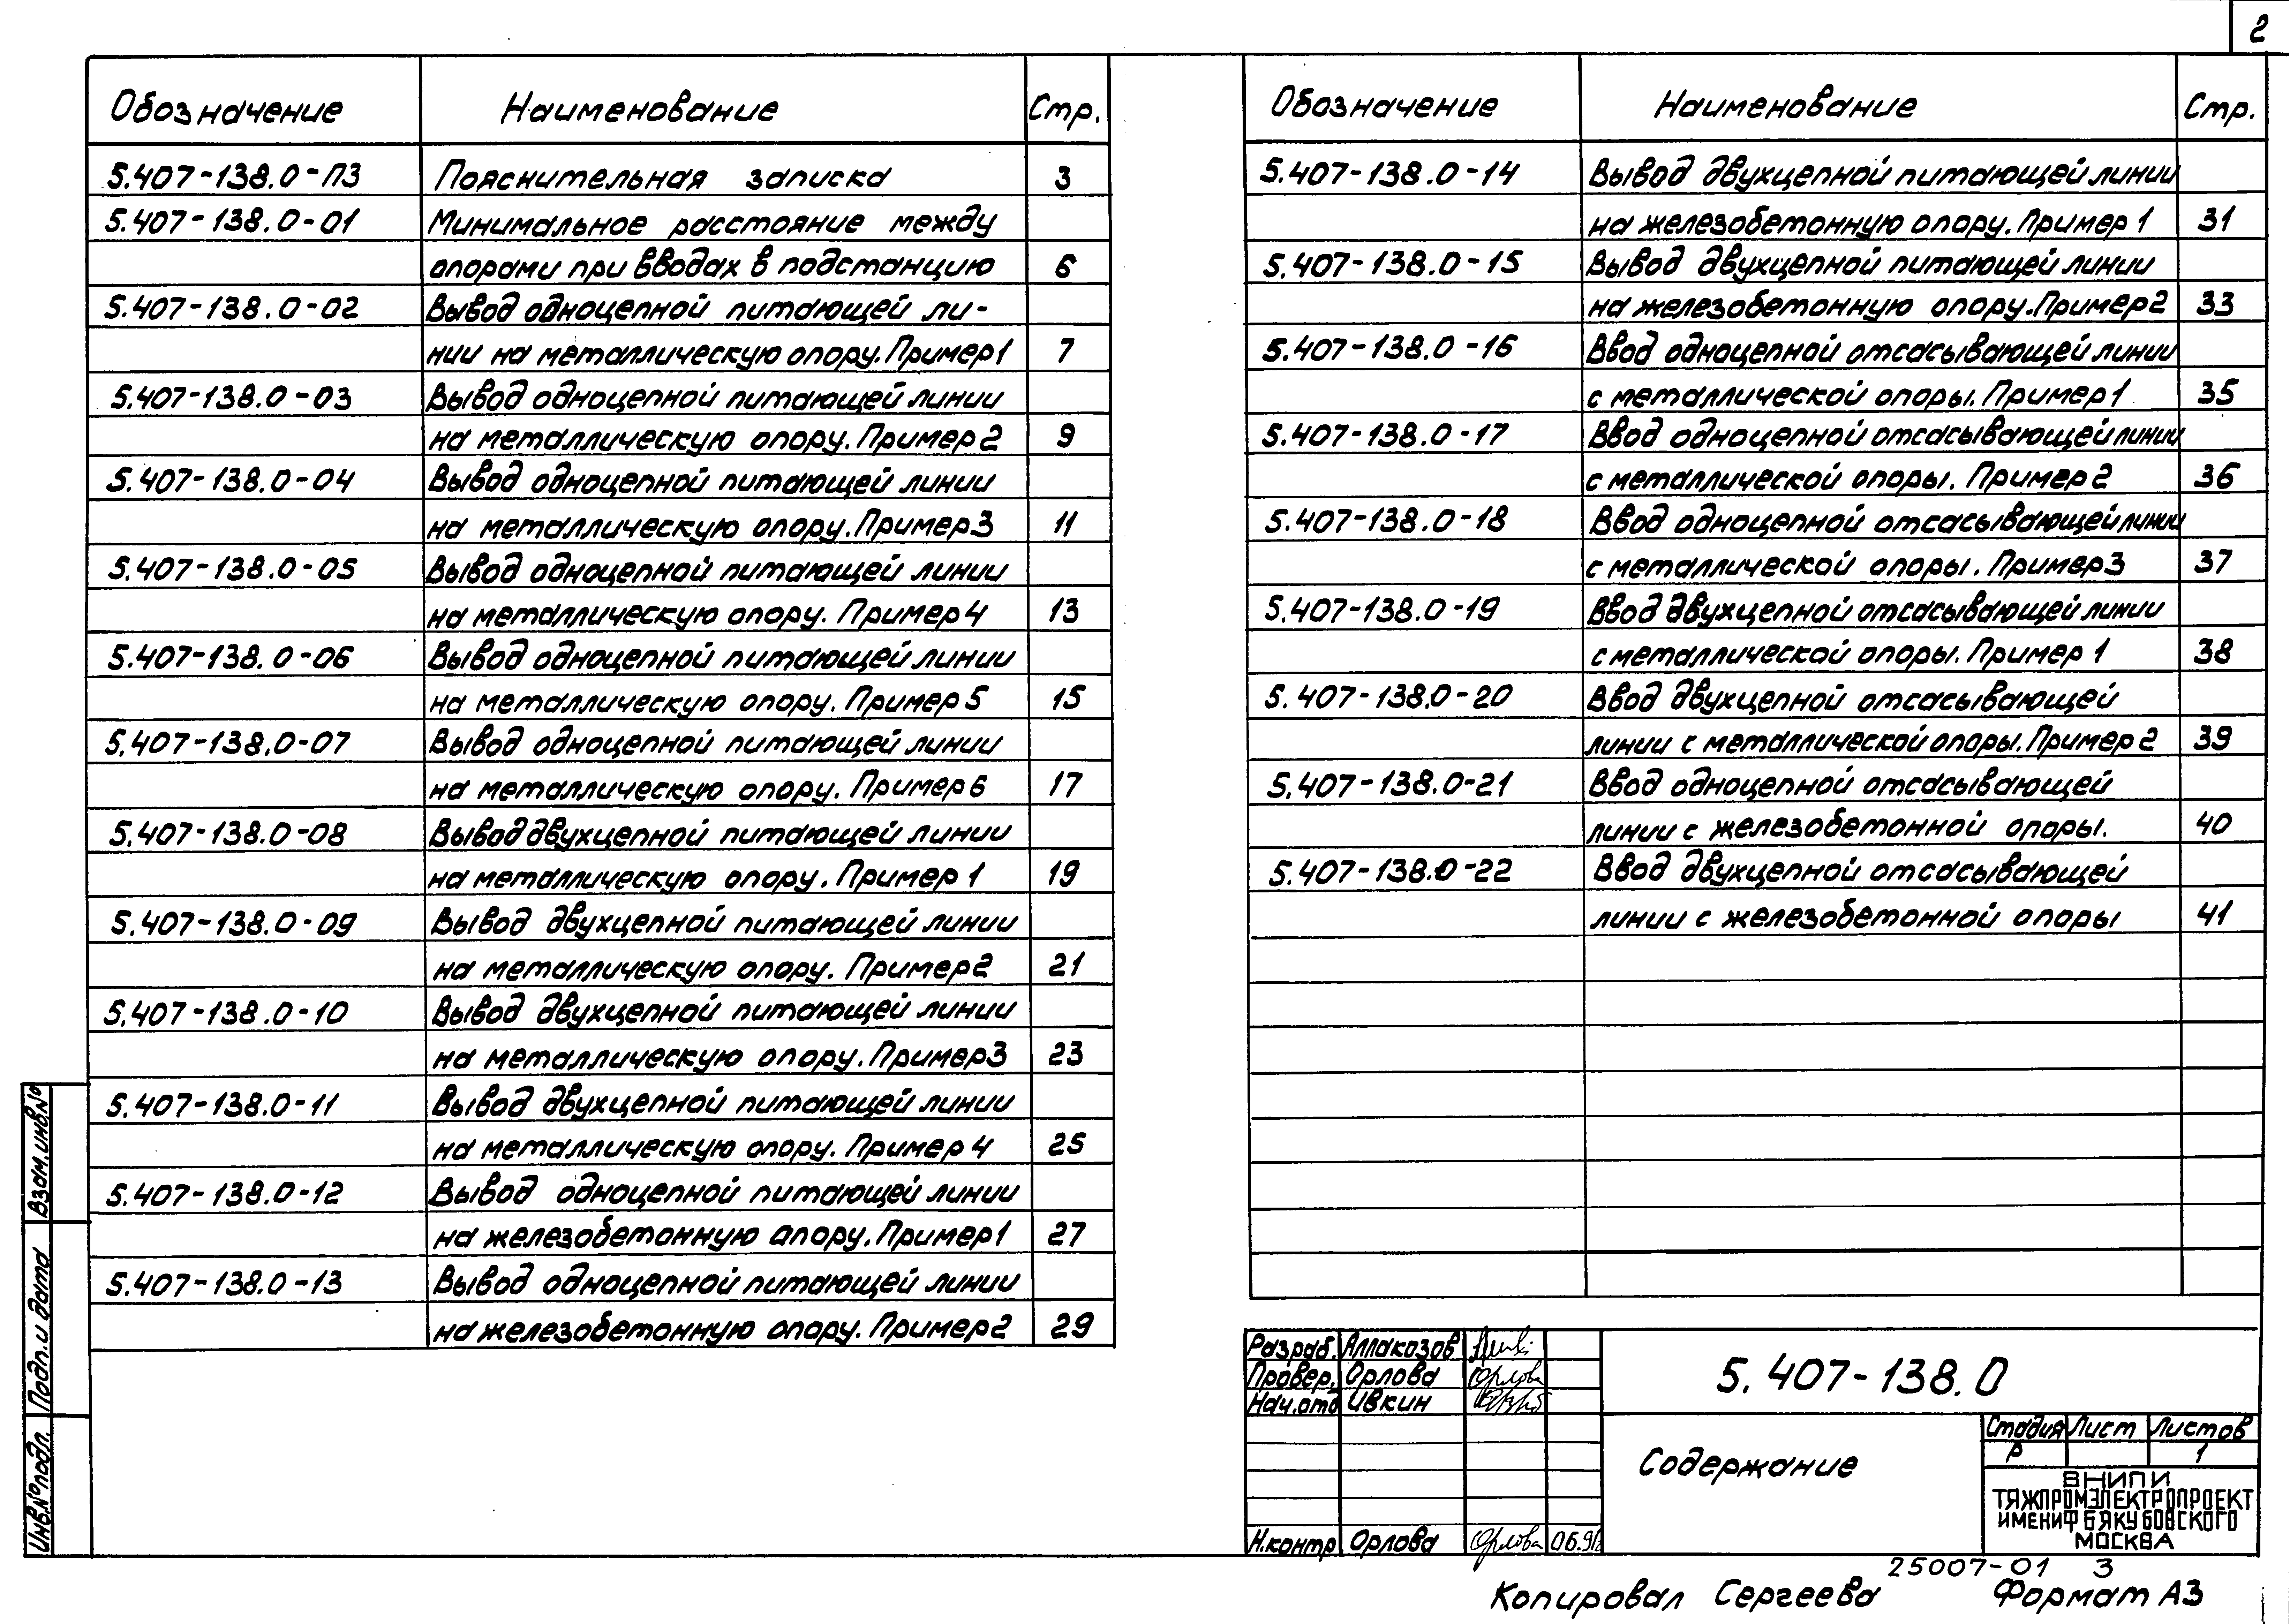 2
Обозначение Наименование Стр.
5.407-138.0-ПЗ Пояснительная записка 3
5.407-138.0-01 Минимальное расстояние между
опорами при вводах в подстанцию 6
5.407-138.0-02 Вывод одноцепной питающей ли-
нии на металлическую опору. Пример 1 7
5.407-138.0-03 Вывод одноцепной питающей линии
на металлическую опору. Пример 2 9
5.407-138.0-04 Вывод одноцепной питающей линии
на металлическую опору. Пример 3 11
5.407-138.0-05 Вывод одноцепной питающей линии
на металлическую опору. Пример 4 13
5.407-138.0-06 Вывод одноцепной питающей линии
на металлическую опору. Пример 5 15
5.407-138.0-07 Вывод одноцепной питающей линии
на металлическую опору. Пример 6 17
5.407-138.0-08 Вывод двухцепной питающей линии
на металлическую опору. Пример 1 19
5.407-138.0-09 Вывод двухцепной питающей линии
на металлическую опору. Пример 2 21
5.407-138.0-10 Вывод двухцепной питающей линии
на металлическую опору. Пример 3 23
5.407-138.0-11 Вывод двухцепной питающей линии
на металлическую опору. Пример 4 25
5.407-138.0-12 Вывод одноцепной питающей линии
на железобетонную опору. Пример 1 27
5.407-138.0-13 Вывод одноцепной питающей линии
на железобетонную опору. Пример 2 29
Обозначение Наименование Стр.
5.407-138.0-14 Вывод двухцепной питающей линии
на железобетонную опору. Пример 1 31
5.407-138.0-15 Вывод двухцепной питающей линии
на железобетонную опору. Пример 2 33
5.407-138.0-16 Ввод одноцепной отсасывающей линии
с металлической опоры. Пример 1 35
5.407-138.0-17 Ввод одноцепной отсасывающей линии
с металлической опоры. Пример 2 36
5.407-138.0-18 Ввод одноцепной отсасывающей линии
с металлической опоры. Пример 3 37
5.407-138.0-19 Ввод двухцепной отсасывающей линии
с металлической опоры. Пример 1 38
5.407-138.0-20 Ввод двухцепной отсасывающей
линии с металлической опоры. Пример 2 39
5.407-138.0-21 Ввод одноцепной отсасывающей
линии с железобетонной опоры. 40
5.407-138.0-22 Ввод двухцепной отсасывающей
линии с железобетонной опоры 41
Взам. инв. №
Подп. и дата
Инв. № подл.
Разраб. Аллакозов
Провер. Орлова Орлова
Нач. отд Ивкин
Н.контр Орлова Орлова 06.91
5.407-138.0
Содержание
Стадия Лист Листов
Р 1
ВНИПИ
ТЯЖПРОМЭЛЕКТРОПРОЕКТ
ИМЕНИ Ф Б ЯКУБОВСКОГО
МОСКВА
25007-01 3
Копировал Сергеева Формат А3